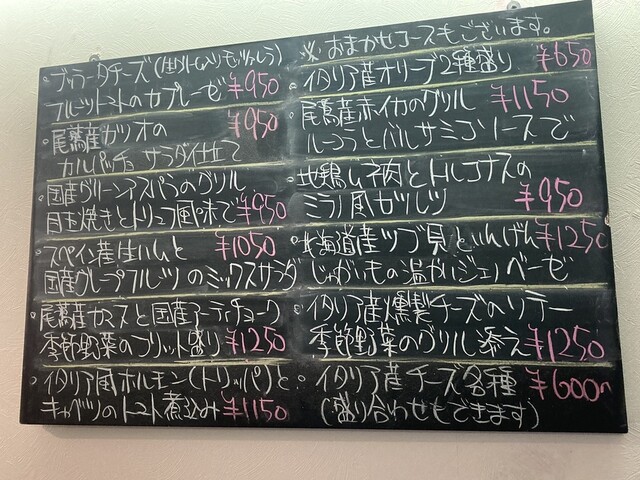 ・ブッラータチーズ(生クリーム入りモッツァレラ)
フルーツトマトのカプレーゼ ¥950
・尾鷲産カツオの ¥950
カルパッチョ サラダ仕立て
・国産グリーンアスパラのグリル
目玉焼きとトリュフ風味で ¥950
・スペイン産生ハムと ¥1050
国産グレープフルーツのミックスサラダ
・尾鷲産カマスと国産アーティチョーク
季節野菜のフリット盛り ¥1250
・イタリア風ホルモン(トリッパ)と
キャベツのトマト煮込み ¥1150
※おまかせコースもございます。
・イタリア産オリーブ2種盛り ¥650
・尾鷲産赤イカのグリル ¥1150
ルーコラとバルサミコソースで
・地鶏ムネ肉とトルコナスの
ミラノ風カツレツ ¥950
・北海道産ツブ貝といんげん ¥1250
じゃがいもの温かいジェノベーゼ
・イタリア産燻製チーズのソテー
季節野菜のグリル添え ¥1250
・イタリア産チーズ各種 ¥600〜
(盛り合わせもできます)